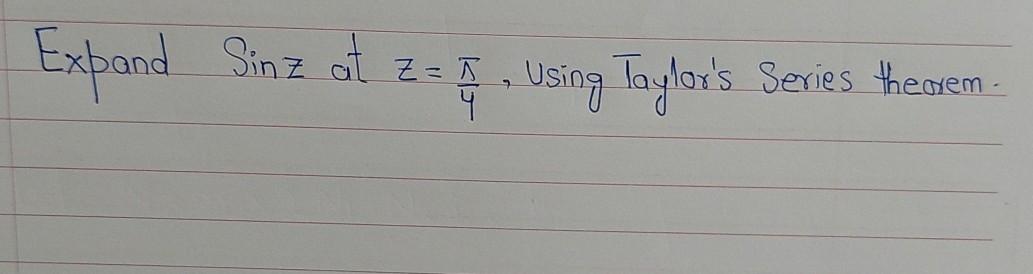 Expand Sinz at z = π/4, Using Taylor's Series theorem.